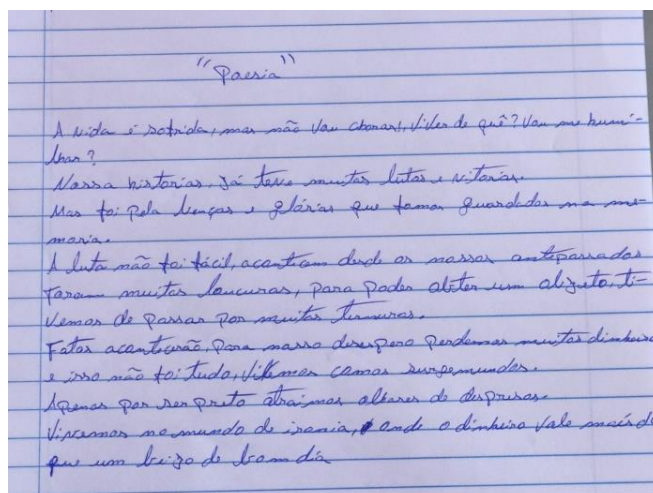 "Poesia"
A vida é sofrida, mas não vou chorar!, viver de quê? Vou me humi-
lhar?
Nossa historias, já teve muitas lutas e vitorias.
Mas foi pela lenças e glórias que fomos guardados na me-
moria.
A luta não foi fácil, aconticem desde os nossos antipassados
Foram muitas loucuras, para poder obter um objeto, ti-
vemos de passar por muitas ternuras.
Fatos aconticirão, para nosso desespero perdemos muitos dinheiro
e isso não foi tudo, vivemos comos surgemundos.
Apenas por ser preto atraimos olhares de despresos.
Vivemos no mundo de ironia, onde o dinheiro vale mais do
que um beijo de bom dia